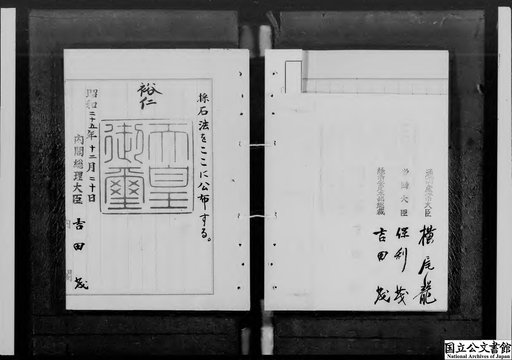 採石法をここに公布する。
裕仁
天皇
御璽
昭和二十五年十二月二十日
内閣総理大臣 吉田茂
通商産業大臣 横尾龍
労働大臣 保利茂
吉田茂
国立公文書館
National Archives of Japan